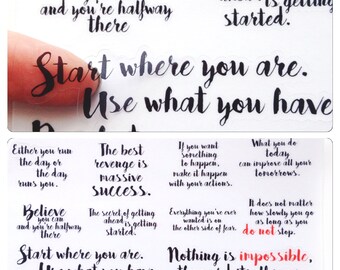 and you're halfway
there
is getting
started.
Start where you are.
Use what you have
Either you run
the day or
the day
runs you.
The best
revenge is
massive
success.
If you want
something
to happen,
make it happen
with your actions.
What you do
today
can improve all your
tomorrows.
Believe
you can
and you're halfway
there
The secret of getting
ahead is getting
started.
Everything you've ever
wanted is on
the other side of fear.
It does not matter
how slowly you go
as long as you
do not stop.
Start where you are.
Use what you have
Nothing is impossible,